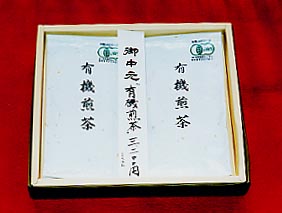 有機煎茶
御中元 有機煎茶 三二〇〇円
有機煎茶